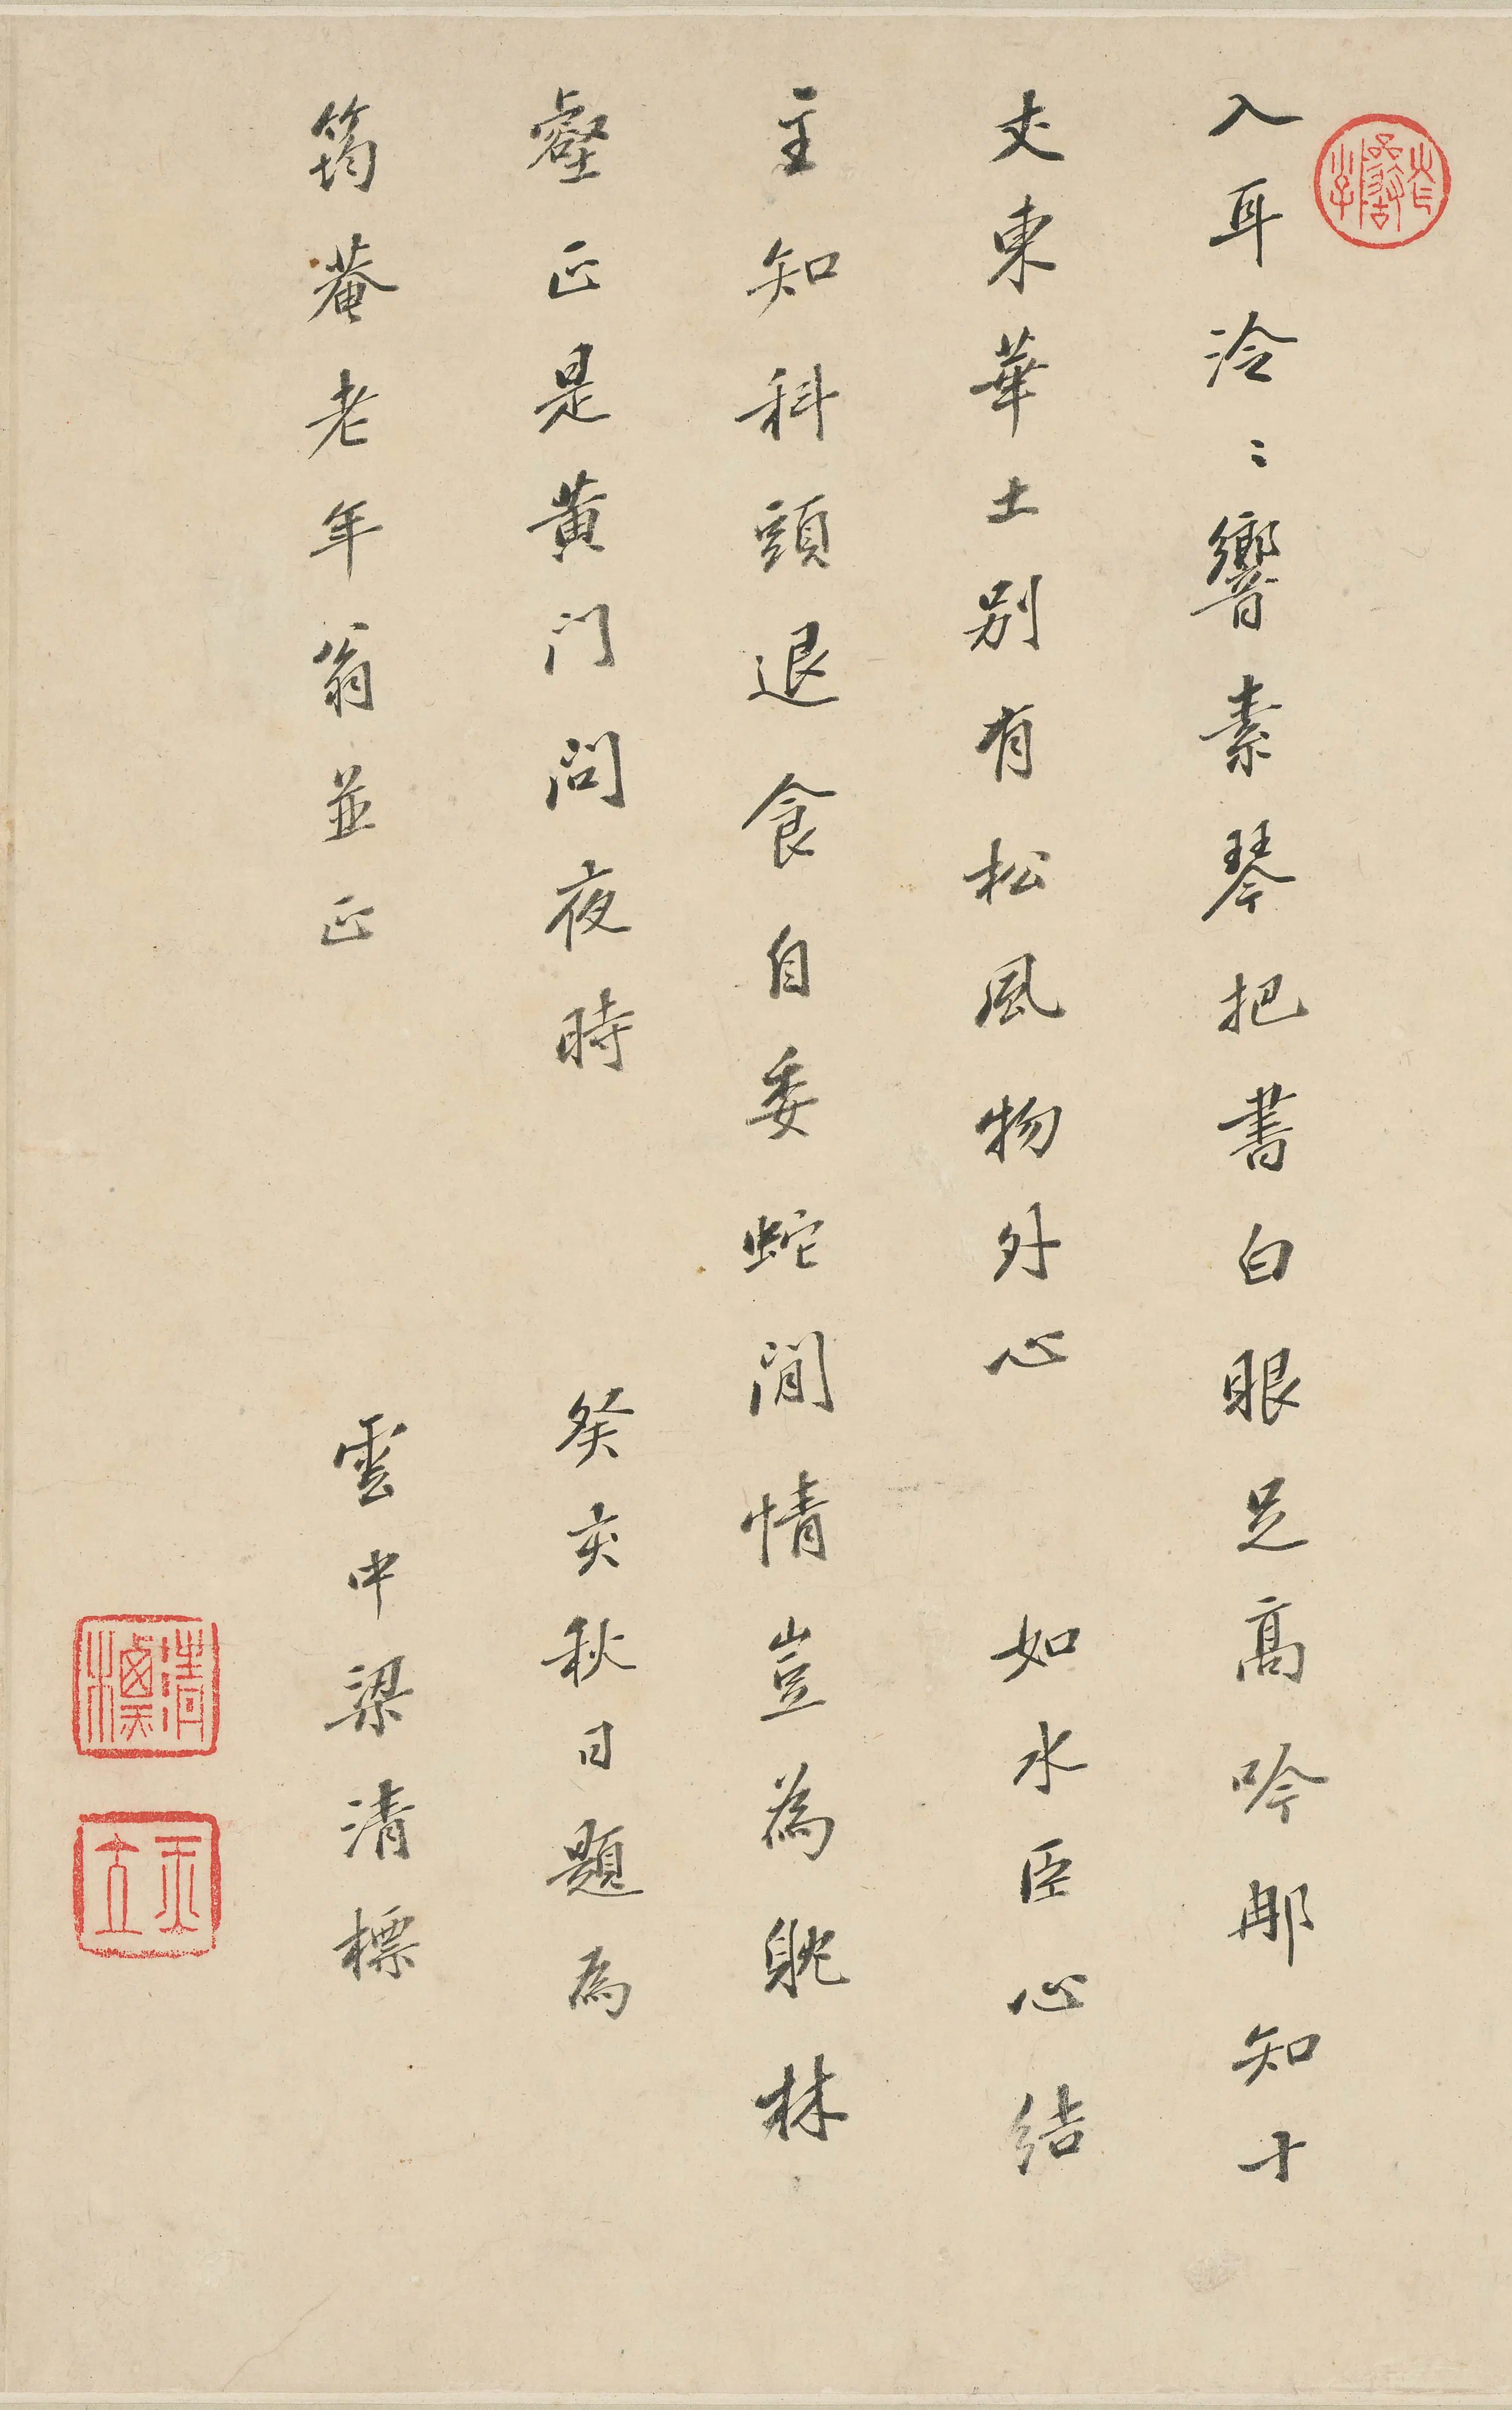 入耳泠〻響素琴把書白眼足高吟那知十
丈東華土別有松風物外心 如水臣心結
主知科頭退食自委蛇閒情豈為躭林
壑正是黃门问夜時 癸亥秋日題為
筠菴老年翁並正 雲中梁清標
清標
玉立